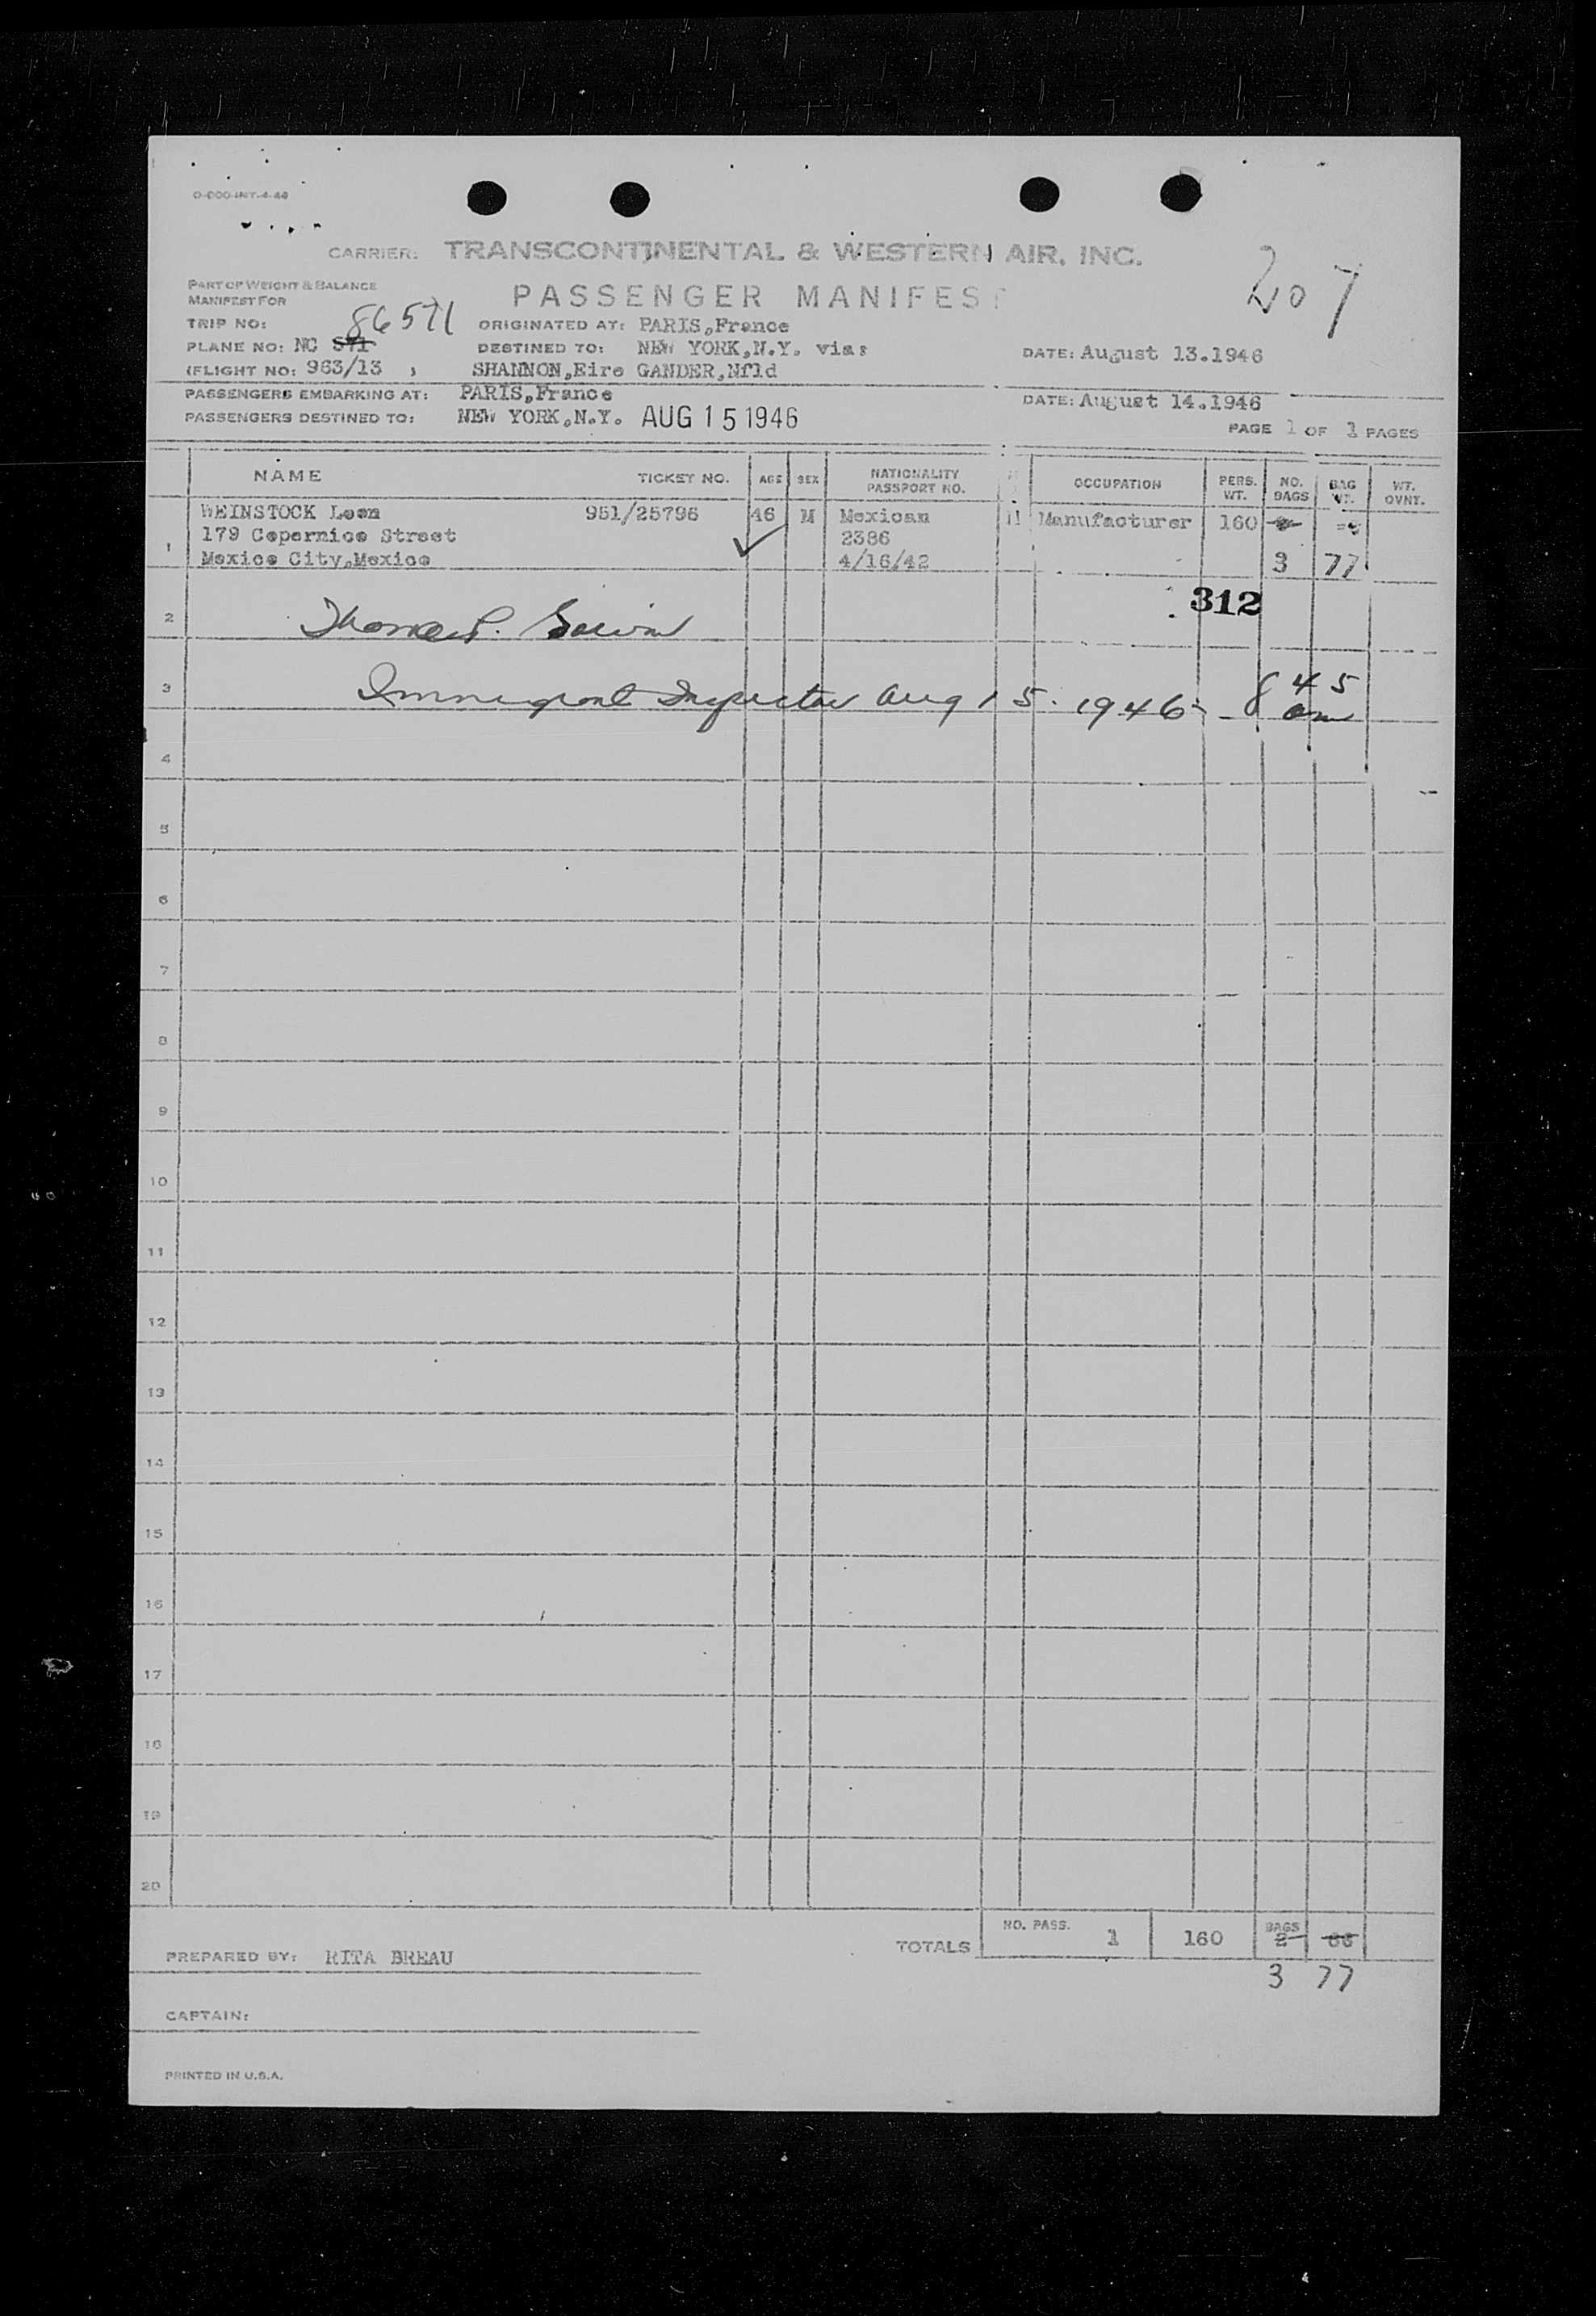 O-600-INT-4-46
CARRIER: TRANSCONTINENTAL & WESTERN AIR, INC.
207
PART OF WEIGHT & BALANCE
MANIFEST FOR
PASSENGER MANIFEST
TRIP NO: 86571 ORIGINATED AT: PARIS,France
PLANE NO: NC 571 DESTINED TO: NEW YORK,N.Y. via: DATE: August 13.1946
(FLIGHT NO: 963/13 ) SHANNON,Eire GANDER,Nfld
PASSENGERS EMBARKING AT: PARIS,France DATE: August 14.1946
PASSENGERS DESTINED TO: NEW YORK,N.Y. AUG 15 1946
PAGE 1 OF 1 PAGES
NAME TICKET NO. AGE SEX NATIONALITY PASSPORT NO. OCCUPATION PERS. WT. NO. BAGS BAG WT. WT. OVNT.
WEINSTOCK Leon 951/25796 46 M Mexican M Manufacturer 160
179 Copernico Street 2386
1 Mexico City,Mexico 4/16/42 3 77
312
2 Thomas P.
3 Immigrant Inspector Aug 15. 1946 - 8 45 am
4
5
6
7
8
9
10
11
12
13
14
15
16
17
18
19
20
TOTALS NO. PASS. 1 160 BAGS 2 66
PREPARED BY: RITA BREAU
3 77
CAPTAIN:
PRINTED IN U.S.A.